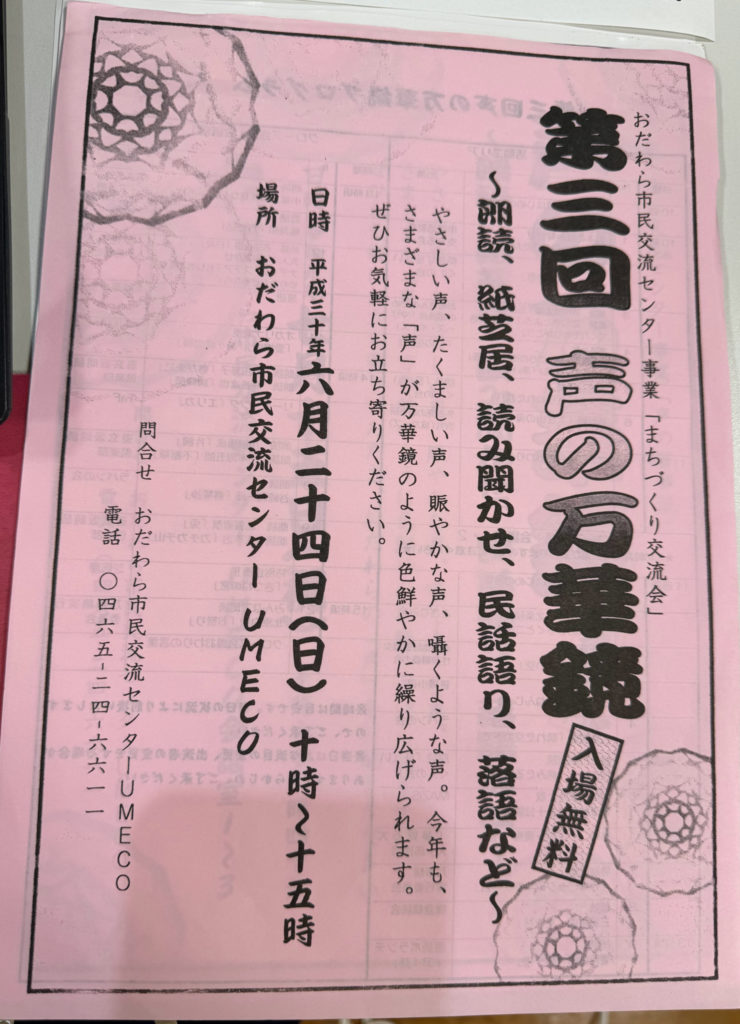 おだわら市民交流センター事業「まちづくり交流会」
第三回 声の万華鏡
入場無料
～朗読、紙芝居、読み聞かせ、民話語り、落語など～
やさしい声、たくましい声、賑やかな声、囁くような声。今年も、
さまざまな「声」が万華鏡のように色鮮やかに繰り広げられます。
ぜひお気軽にお立ち寄りください。
日時 平成三十年六月二十四日(日) 十時～十五時
場所 おだわら市民交流センターUMECO
問合せ おだわら市民交流センターUMECO
電話 〇四六五-二四-六六一一